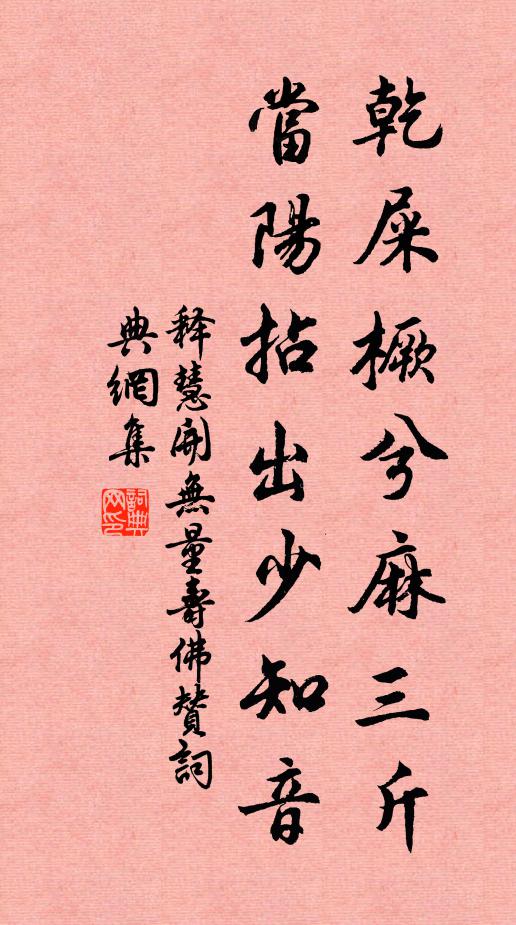 乾屎橛兮麻三斤
當陽拈出少知音
释慧開無量壽佛贊詞
典網集
詞典网印